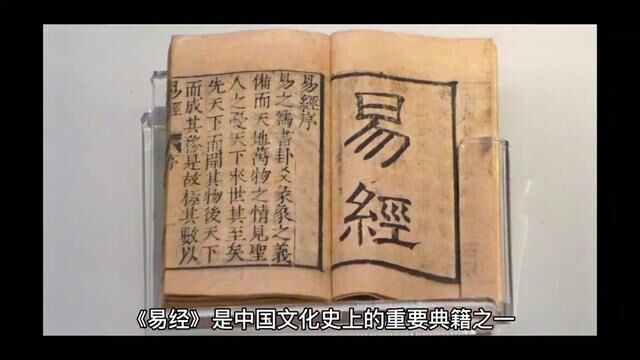 易經
易經序
易之爲書卦爻彖象之義
備而天地萬物之情見聖
人之憂天下來世其至矣
先天下而開其物後天下
而成其務是故極其數以
易經 序
《易经》是中国文化史上的重要典籍之一